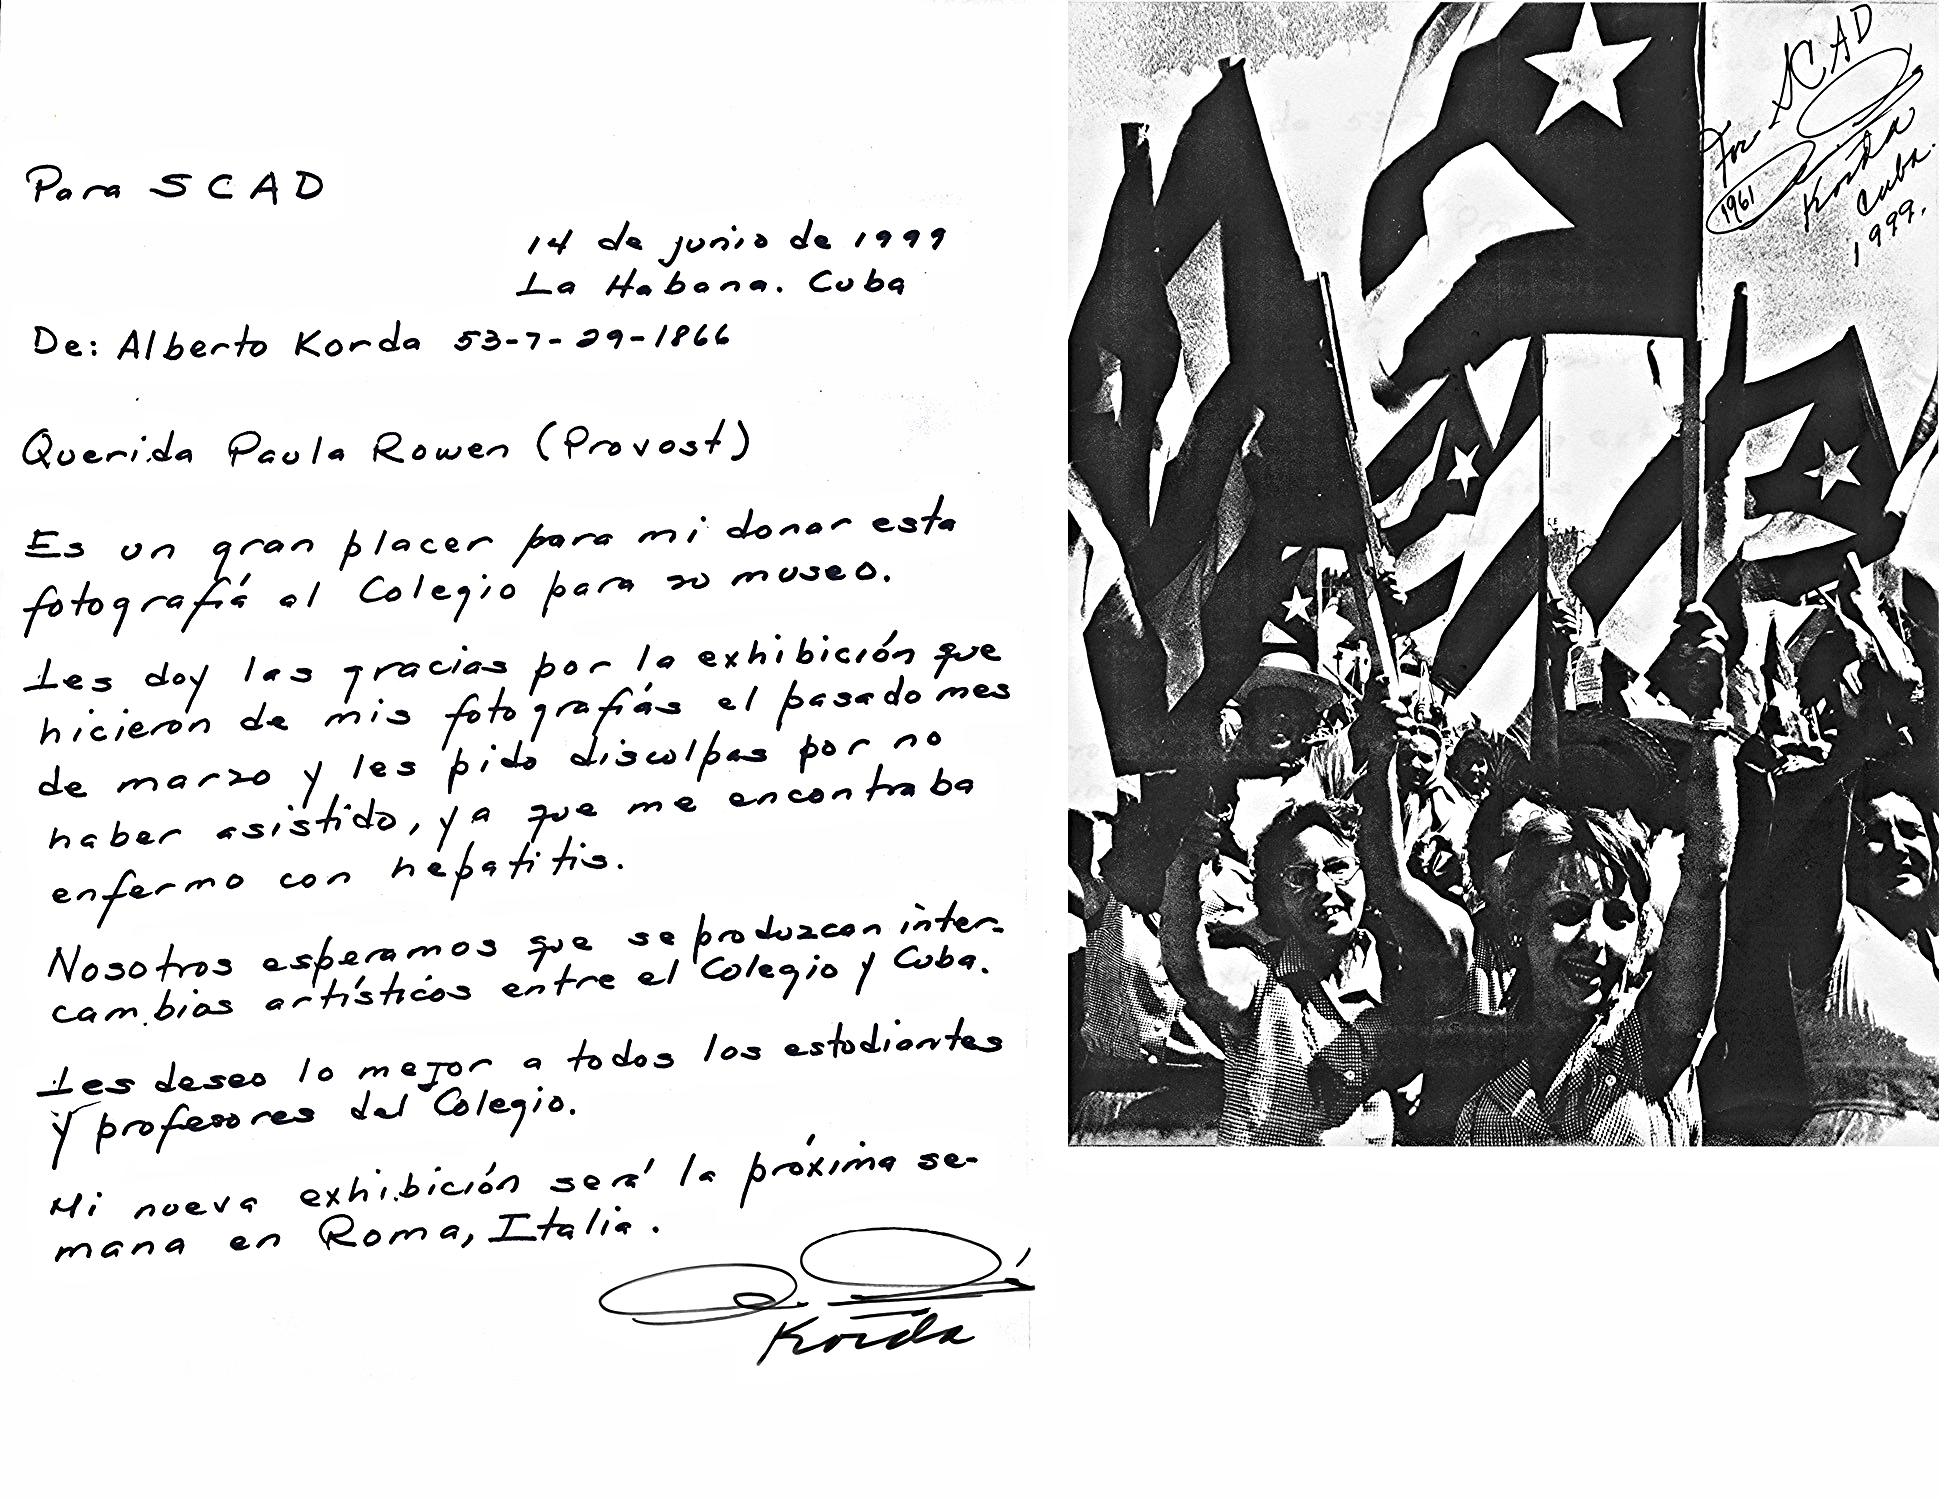 Para SCAD
14 de junio de 1999
La Habana. Cuba
De: Alberto Korda 53-7-29-1866
Querida Paula Rowen (Provost)
Es un gran placer para mi donar esta
fotografiá al Colegio para su museo.
Les doy las gracias por la exhibición que
hicieron de mis fotografiás el pasado mes
de marzo y les pido disculpas por no
haber asistido, ya que me encontraba
enfermo con hepatitis.
Nosotros esperamos que se produzcan inter-
cambios artísticos entre el Colegio y Cuba.
Les deseo lo mejor a todos los estudiantes
y profesores del Colegio.
Mi nueva exhibición será la próxima se-
mana en Roma, Italia.
Korda
For SCAD
1961
Korda
Cuba.
1999.